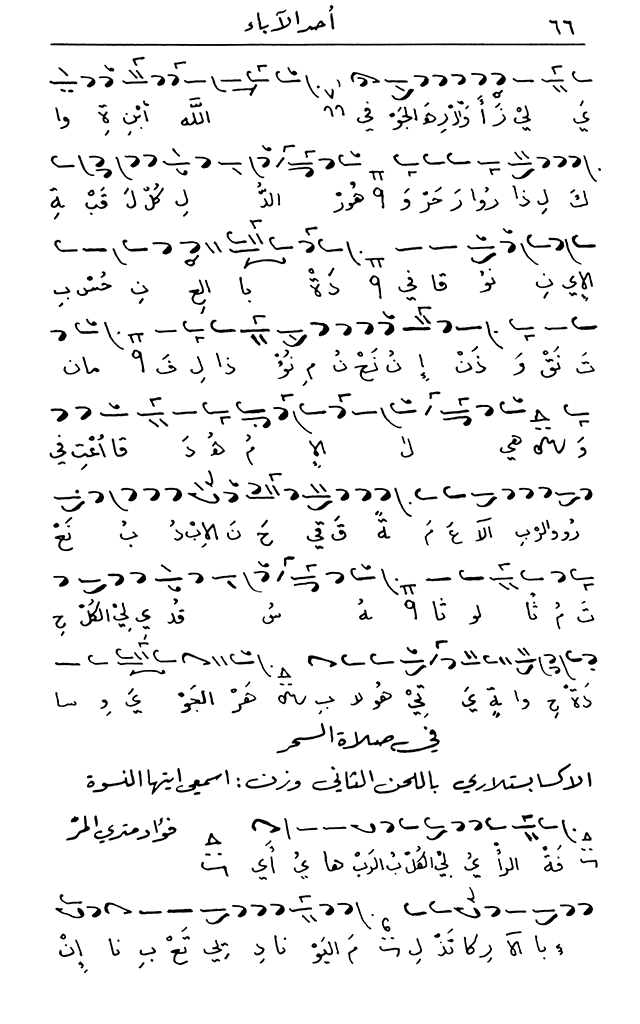 ٦٦ أحد الآباء
يَ لِيْ زَ أَ الجَوْ في اللَّه ابْنِ ةِ وا
كَ لِ ذا رُوا رَ حَرْ وَ هُوَرْ الدُّ لِ كُلّ لَ قَبْ ةِ
الإي نِ نُوْ قا في دَةْ با العِ نِ حُسْ بِ
تَ نَقْ وَ ذَنْ إِ نُ نَحْنُ مِ نُؤْ ذا لِ فَ مان
وَ هي لٰ الإِ مُ هُ دَ قا في
رُ وو الرْبِ اَلآ عَ مَ ةً قَ قي حَ نَ الاِبْ دُ بُ نَعْ
تَ مُ ثا لو ثا هُ سُ قُدْ يِ لِيْ الكُلّ حِ
دَةْ حِ وا ةِ يَ قِيْ هُو لا بِ هَرْ الجَوْ يَ وِ سا
في صلاة السحر
الاكسابستلاري باللحن الثاني وزن : اسمعي ايتها النسوة
فؤاد متري المرّ
فَةْ الرأْ يُ لِيْ الكُلّ بُ الرَبْ ها يُ أَي
ءِ با اَلآ رِ كا تَذْ لِ مَ اليَوْ نا دِ يِي تَعْ بِ نا إِنْ